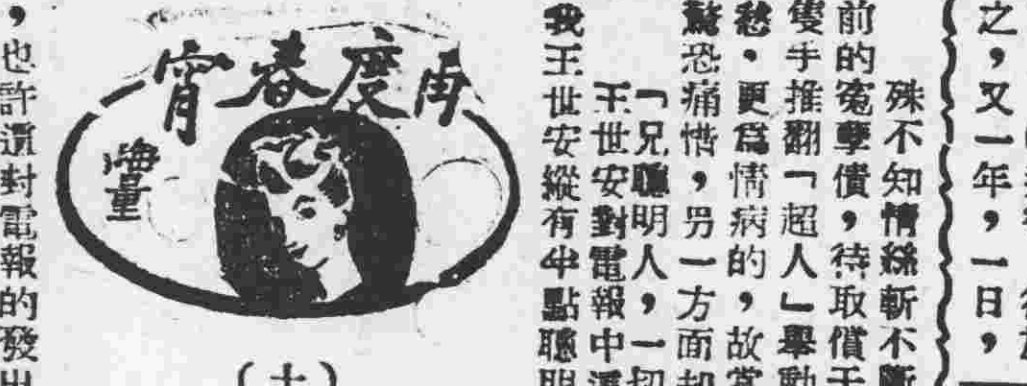 之,又一年,一日,
殊不知情絲斬不斷
前的寃孽債,待取償于
隻手推翻「超人」舉動
愁。更爲情病的,故當
驚恐痛惜,另一方面却
「兄聰明人,一切
王世安對電報中還
我王世安縱有半點聰明
再度春宵
嗨量
(十)
,也許還對電報的發出